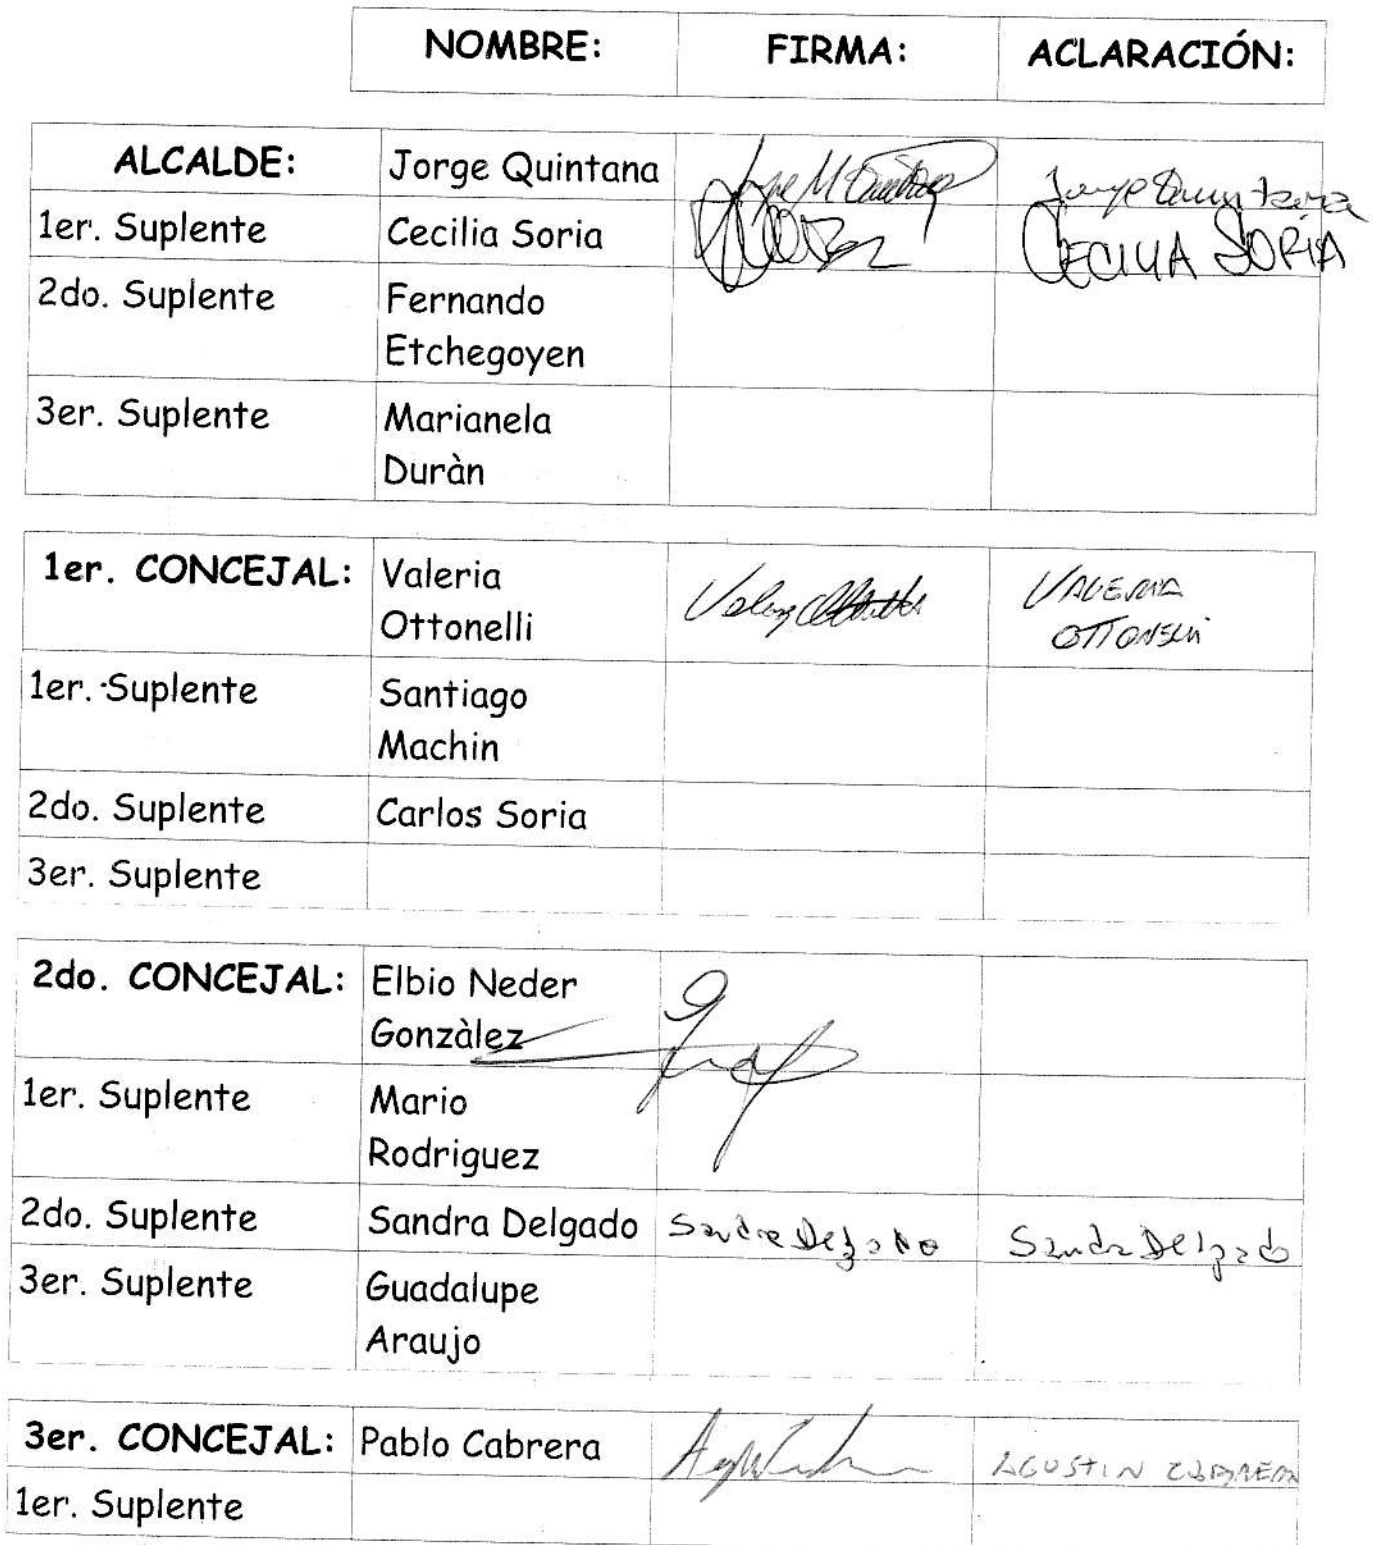 NOMBRE: FIRMA: ACLARACIÓN:
ALCALDE: Jorge Quintana Jorge M Quintana Jorge Quintana
1er. Suplente Cecilia Soria CECILIA SORIA
2do. Suplente Fernando
Etchegoyen
3er. Suplente Marianela
Duràn
1er. CONCEJAL: Valeria VALERIA
Ottonelli OTTONELLI
1er. Suplente Santiago
Machin
2do. Suplente Carlos Soria
3er. Suplente
2do. CONCEJAL: Elbio Neder
Gonzàlez
1er. Suplente Mario
Rodriguez
2do. Suplente Sandra Delgado Sandra Delgado Sandra Delgado
3er. Suplente Guadalupe
Araujo
3er. CONCEJAL: Pablo Cabrera AGUSTIN CABRERA
1er. Suplente